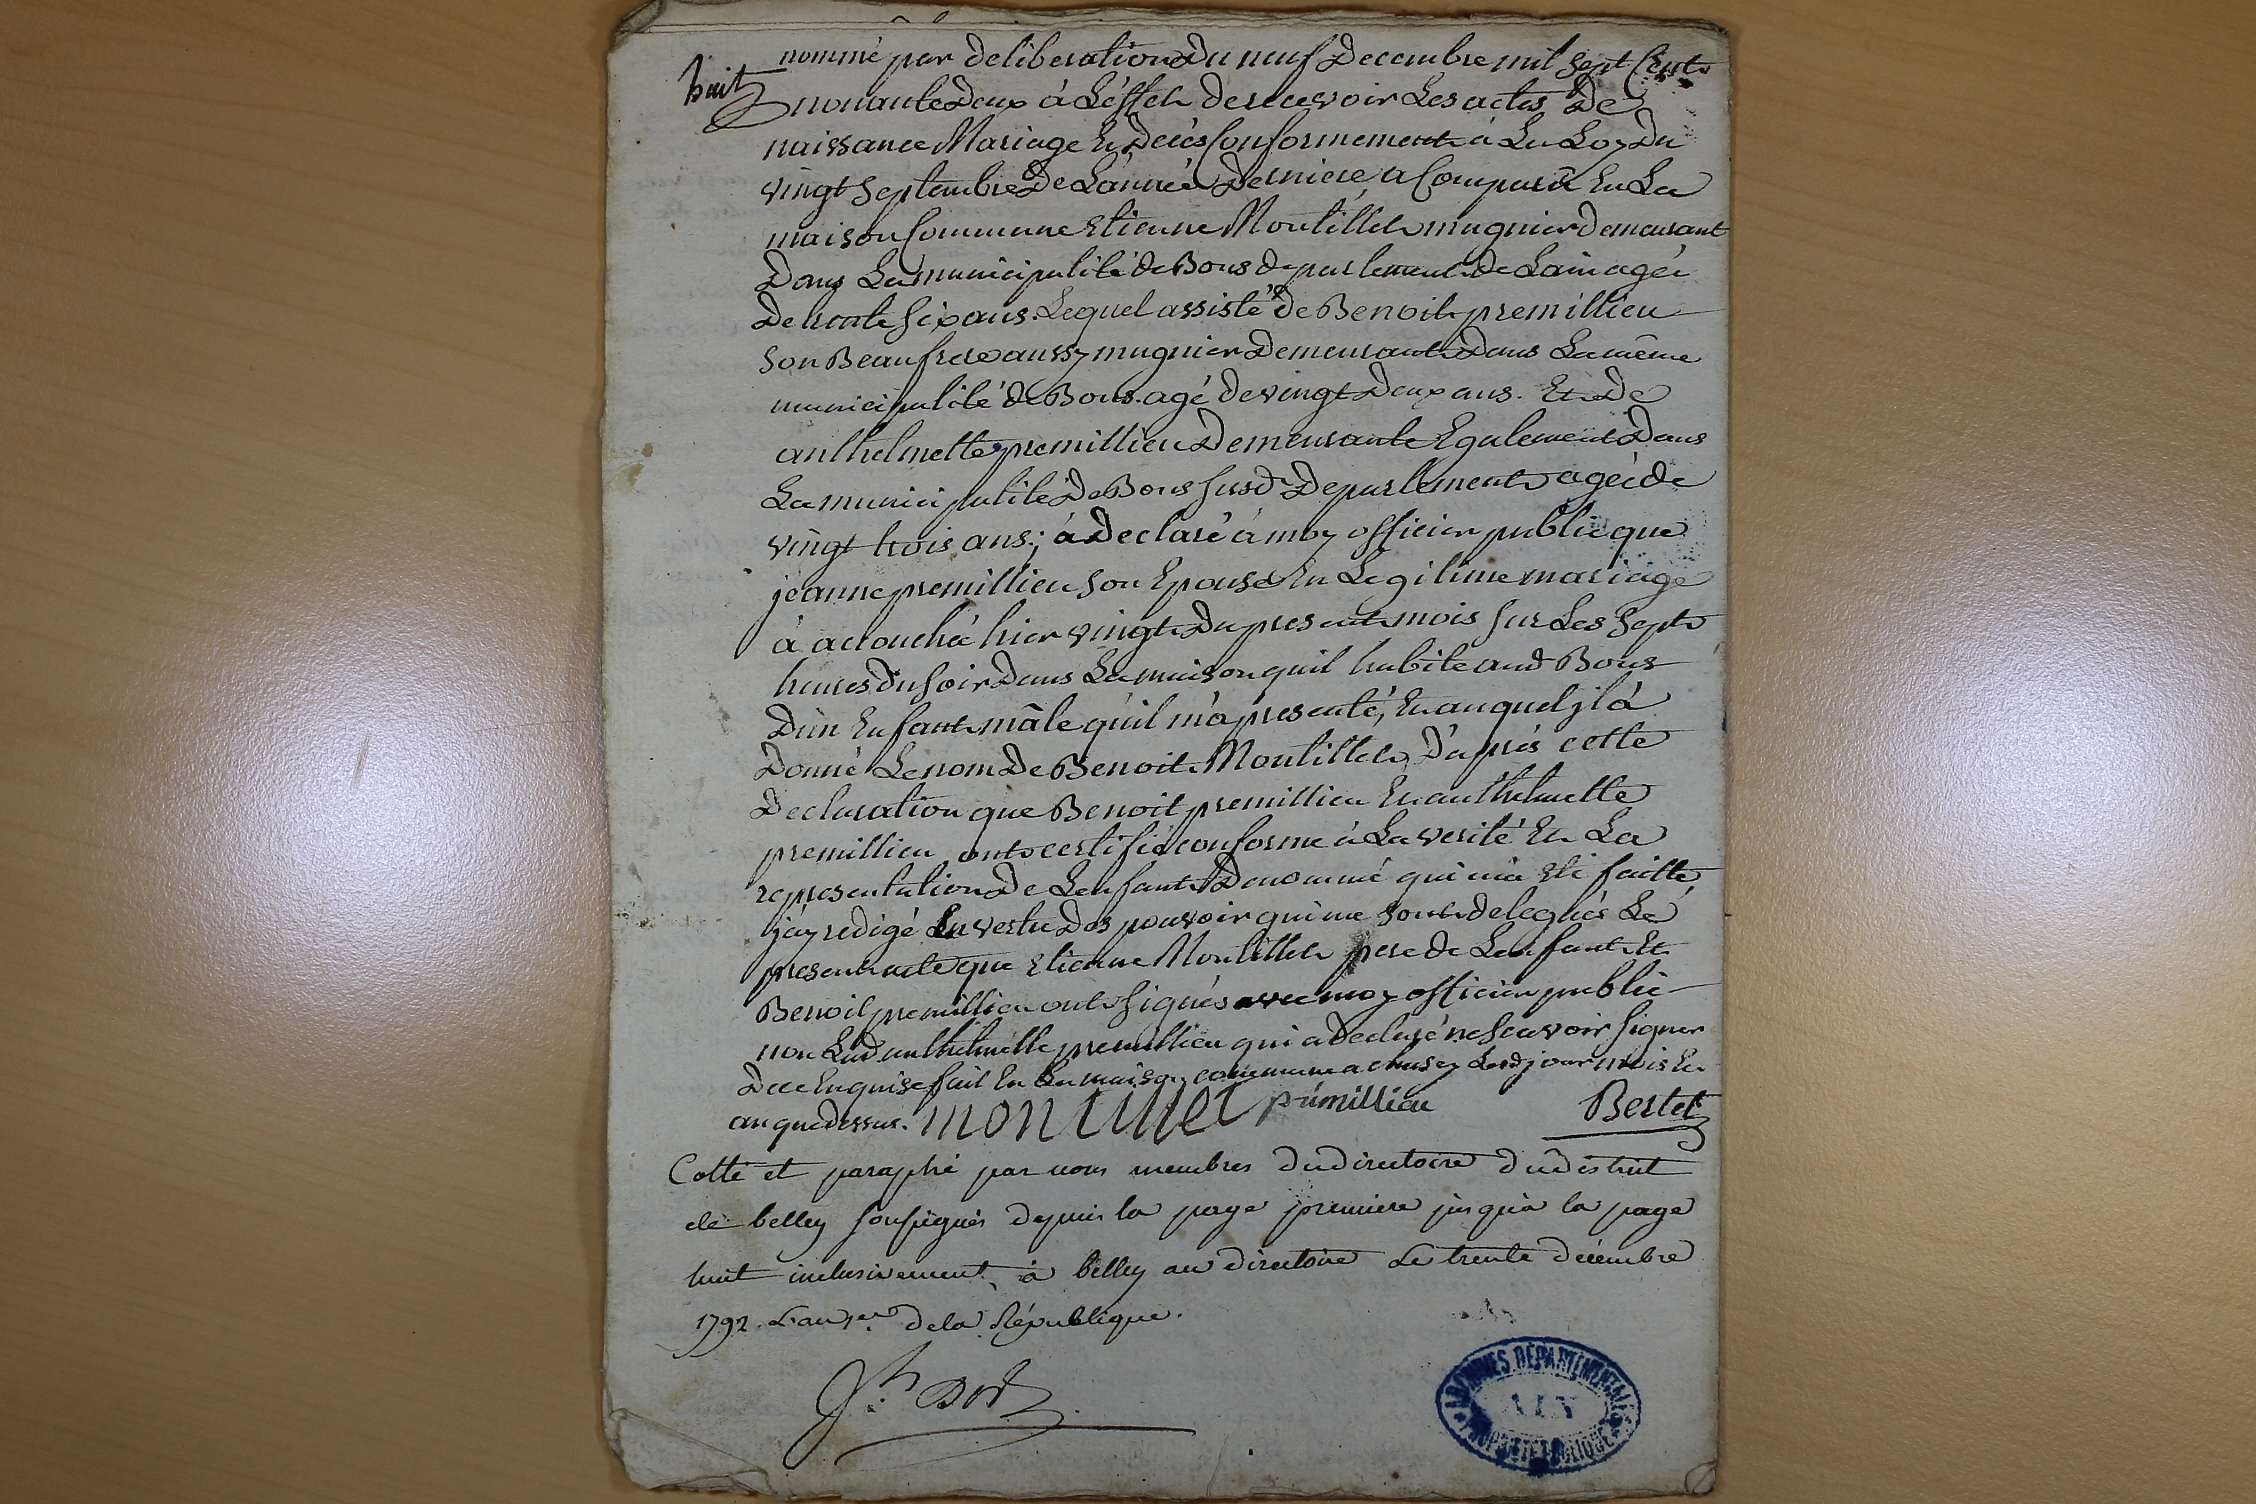 huit
nommé par deliberation Du neuf Decembre mil Sept Cent
nonante Deux à L'éffet de recevoir Les actes De
naissance Mariage Et Decès Conformement à La Loy Du
vingt Septembre De L'année Derniere a Comparu En La
maison Commune Etienne Montillet mugnier demeurant
Dans La municipalité de Bons departement de Lain agée
De trente six ans. Lequel assisté de Benoit premillieu
Son Beaufrere aussy mugnier Demeurant Dans La même
municipalité de Bons. agé de vingt Deux ans. Et De
anthelmette premillieu Demeurante Egalement Dans
La municipalité De Bons susd. Departement agée de
vingt trois ans; à Declaré à moy officier public que
jeanne premillieu son Epouse En Legitime mariage
à accouchée hier vingt Du present mois sur Les Sept
heures Du soir Dans La maison quil habite aud Bons
D'un Enfant mâle qu'il m'à presenté, Et auquel jl à
Donné Le nom De Benoit Montillet, D'après cette
Declaration que Benoit premillieu Et anthelmette
premillieu ont certifié conforme à La verité Et La
representation De Lenfant Denommé qui m'a Eté faitte,
j'ay redigé En vertu Des pouvoir qui me sont delegués Le
present acte que Etienne Montillet pere de Lenfant Et
Benoit premillieu ont signés avec moy officier public
non Lad anthelmette premillieu qui a Declaré ne sçavoir signer
De ce Enquise fait En La maison commune a chusey Lesd jour mois Et
an que dessus. montillet prémillieu Bertet
Cotté et paraphé par nous membres du directoire du district
de belley soussignés depuis la page premiere jusqu'à la page
huit inclusivement, à belley au directoire le trente décembre
1792. L'an 1er de la République.
ARCHIVES DÉPARTEMENTALES
AIN
PROPRIÉTÉ PUBLIQUE